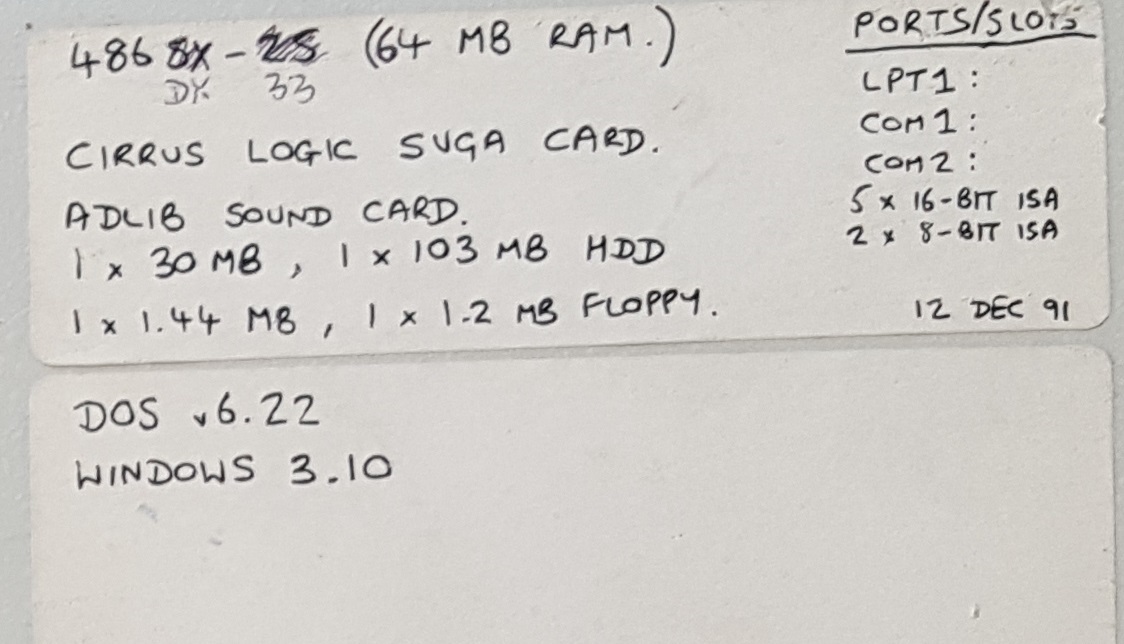 486 SX - 25 (64 MB RAM.)
DX 33
CIRRUS LOGIC SVGA CARD.
ADLIB SOUND CARD.
1 x 30 MB, 1 x 103 MB HDD
1 x 1.44 MB, 1 x 1.2 MB FLOPPY.
PORTS/SLOTS
LPT1:
COM1:
COM2:
5 x 16-BIT ISA
2 x 8-BIT ISA
12 DEC 91
DOS v6.22
WINDOWS 3.10